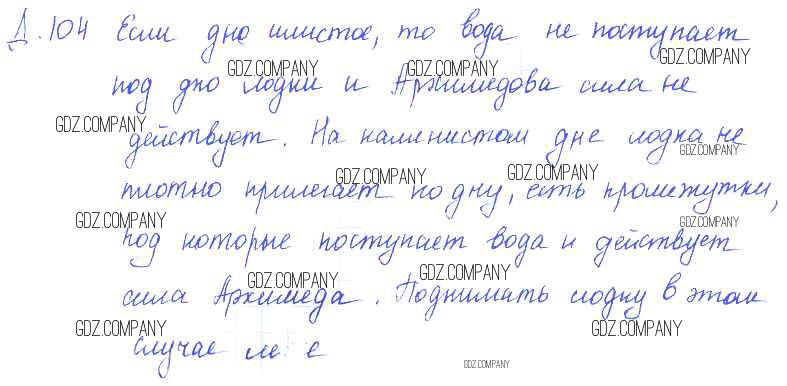 Д. 104 Если дно илистое, то вода не поступает
GDZ.COMPANY
под дно лодки и Архимедова сила не
GDZ.COMPANY GDZ.COMPANY
действует. На каменистом дне лодка не
GDZ.COMPANY GDZ.COMPANY
плотно прилегает ко дну, есть промежутки,
GDZ.COMPANY GDZ.COMPANY
под которые поступает вода и действует
GDZ.COMPANY GDZ.COMPANY
сила Архимеда. Поднимать лодку в этом
GDZ.COMPANY GDZ.COMPANY
случае
GDZ.COMPANY GDZ.COMPANY
GDZ.COMPANY